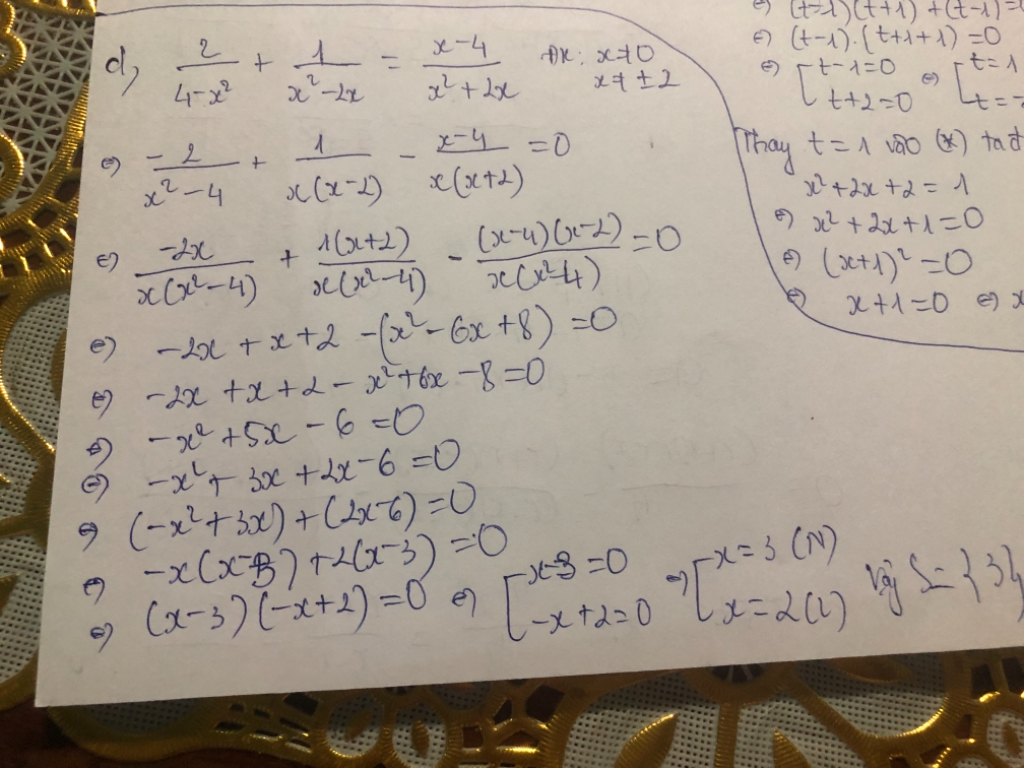 d, 2/(4-x²) + 1/(x²-2x) = (x-4)/(x²+2x) ĐK: x≠0
x≠±2
⇔ -2/(x²-4) + 1/(x(x-2)) - (x-4)/(x(x+2)) = 0
⇔ -2x/(x(x²-4)) + 1(x+2)/(x(x²-4)) - (x-4)(x-2)/(x(x²-4)) = 0
⇔ -2x + x + 2 - (x² - 6x + 8) = 0
⇔ -2x + x + 2 - x² + 6x - 8 = 0
⇔ -x² + 5x - 6 = 0
⇔ -x² + 3x + 2x - 6 = 0
⇔ (-x² + 3x) + (2x-6) = 0
⇔ -x(x-3) + 2(x-3) = 0
⇔ (x-3)(-x+2) = 0 ⇔ [ x-3 = 0 ⇔ [ x = 3 (N) Vậy S = {3}
-x+2 = 0 x = 2 (L)
⇔ (t-1)(t+1) + (t-1) =
⇔ (t-1).(t+1+1) = 0
⇔ [ t-1=0 ⇔ [ t=1
t+2=0 t=
Thay t = 1 vào (*) ta
x² + 2x + 2 = 1
⇔ x² + 2x + 1 = 0
⇔ (x+1)² = 0
⇔ x + 1 = 0 ⇔ x